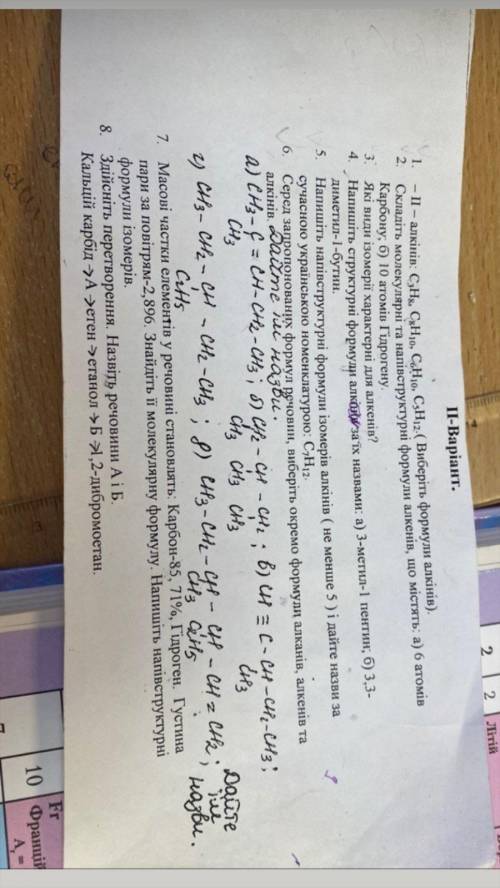 ІІ-Варіант.
1. – ІІ – алкінів: C₅H₈, C₈H₁₀, C₆H₁₀, C₅H₁₂.( Виберіть формули алкінів).
2. Складіть молекулярні та напівструктурні формули алкенів, що містять: а) 6 атомів
Карбону; б) 10 атомів Гідрогену.
3. Які види ізомерії характерні для алкенів?
4. Напишіть структурні формули алкінів за їх назвами: а) 3-метил-1 пентин; б) 3,3-
диметил-1-бутин.
5. Напишіть напівструктурні формули ізомерів алкінів ( не менше 5 ) і дайте назви за
сучасною українською номенклатурою: C₇H₁₂.
6. Серед запропонованих формул речовин, виберіть окремо формули алканів, алкенів та
алкінів. Дайте їм назви.
а) CH₃ – C = CH – CH₂ – CH₃ ; б) CH₂ – CH – CH₂ ; в) CH ≡ C – CH – CH₂ – CH₃ ;
CH₃ CH₃ CH₃ CH₃ CH₃
г) CH₃ – CH₂ – CH – CH₂ – CH₃ ; д) CH₃ – CH₂ – CH – CH – CH = CH₂ ; Дайте їм назви.
C₂H₅ CH₃ C₂H₅
7. Масові частки елементів у речовині становлять: Карбон-85, 71%, Гідроген. Густина
пари за повітрям-2,896. Знайдіть її молекулярну формулу. Напишіть напівструктурні
формули ізомерів.
8. Здійсніть перетворення. Назвіть речовини А і Б.
Кальцій карбід →А →етен →етанол →Б →1,2-дибромоетан.
2
2
Літій
10
Fr
Францій